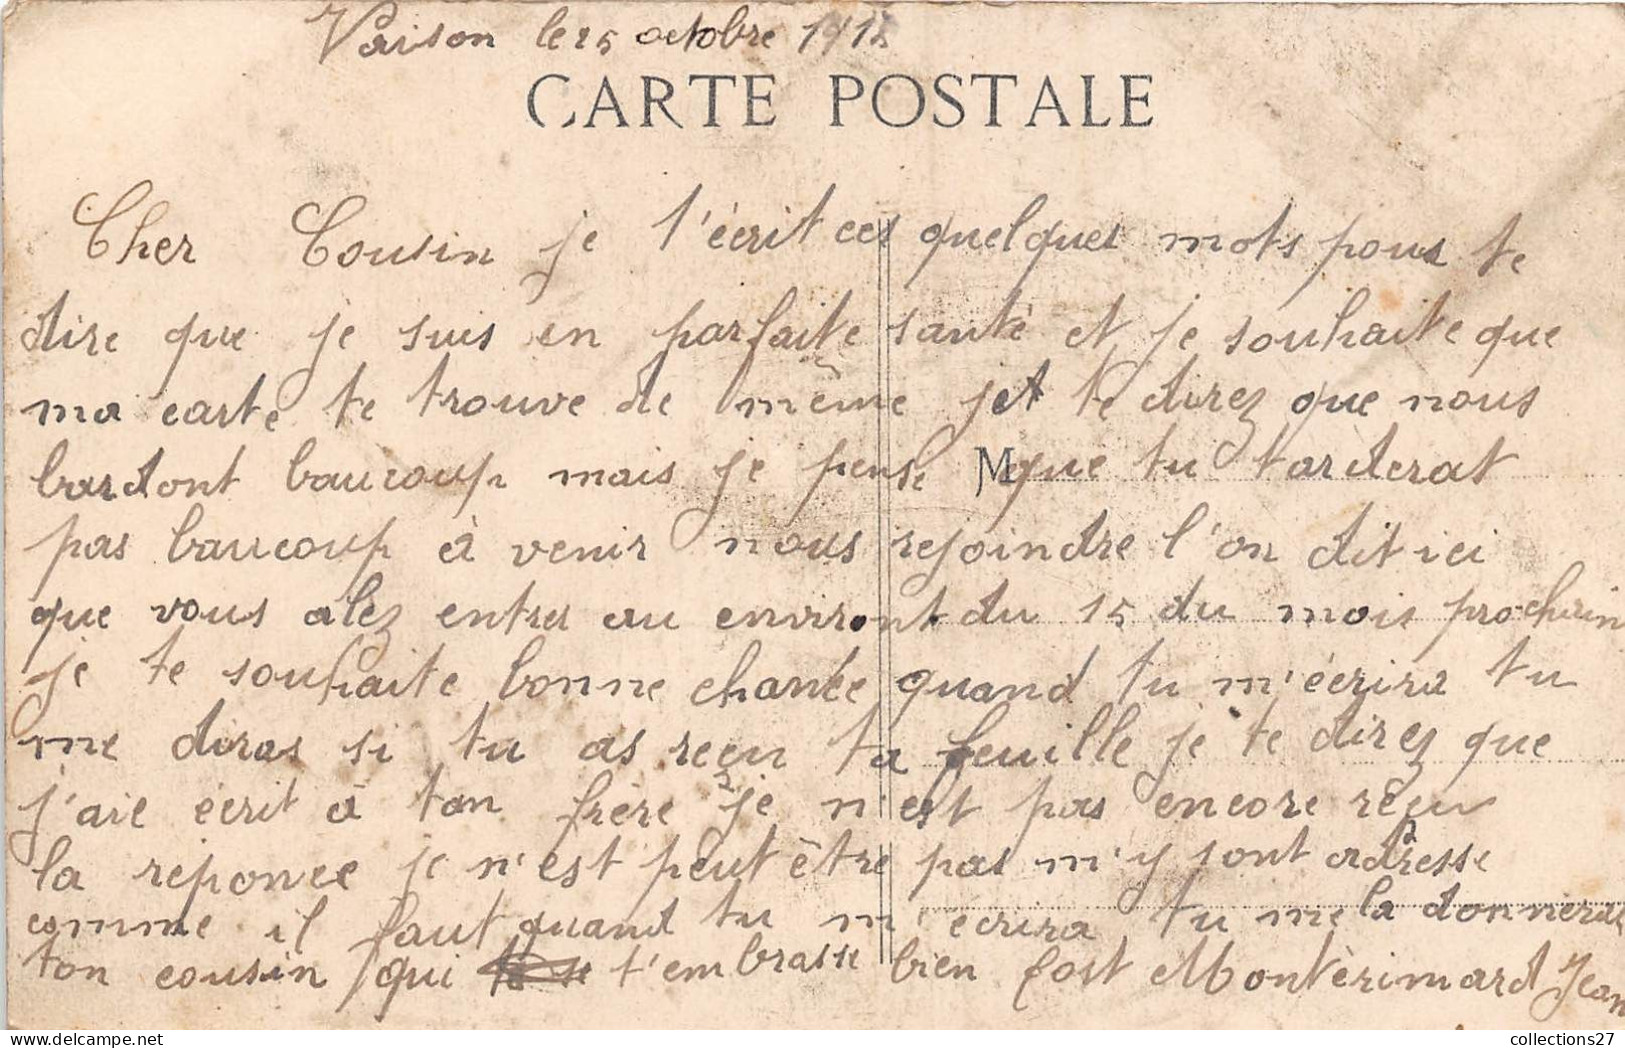 Vaison le 25 octobre 1918
CARTE POSTALE
Cher Cousin je t'écrit ces quelques mots pour te
dire que je suis en parfaite santé et je souhaite que
ma carte te trouve de même jet te direz que nous
bardont baucoup mais je pense que tu tarderat
M
pas baucoup à venir nous rejoindre l'on dit ici
que vous alez entrer au environt du 15 du mois prochain
je te souhaite bonne chance quand tu m'écrira tu
me diras si tu as reçu ta feuille je te direz que
j'aie écrit à ton frère je n'est pas encore reçu
la reponce je n'est peut être pas m'y sont adresse
comme il faut quand tu m'écrira tu me la donneras
ton cousin qui t'embrasse bien fort Montèrimard Jean
collections27